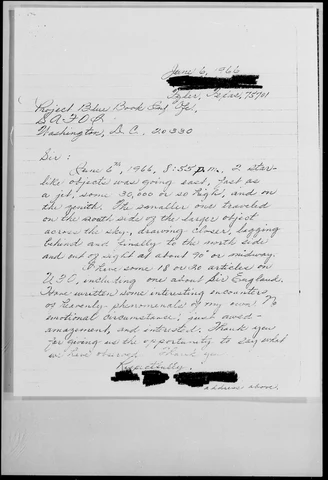 June 6, 1966
Tyler, Texas, 75701
Project Blue Book Inf. Ofc,
S A F O I
Washington, D.C. 20330
Sir:
June 6th, 1966, 8:55 p.m. 2 star-
like objects was going east, fast as
a jet, some 30,000 or so high, and on
the zenith. The smaller one traveled
on the south side of the larger object
across the sky, drawing closer, lagging
behind and finally to the north side
and out of sight at about 90° or midway.
I have some 18 or 20 articles on
U F O, including one about Sir England.
Have written some interesting encounters
of Heavenly phenomenals of my own! No
emotional circumstance, just awed-
amazement, and interested. Thank you
for giving us the opportunity to say what
we have observed. Thank you
Respectfully,
address above.